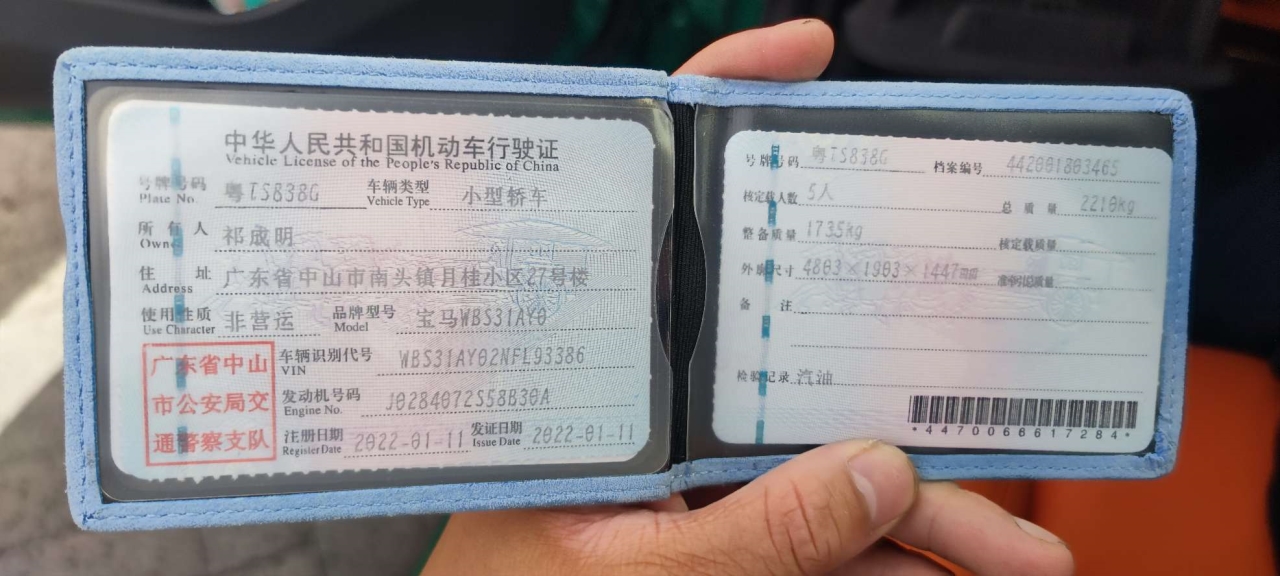 中华人民共和国机动车行驶证
Vehicle License of the People's Republic of China
号牌号码 粤TS838G 车辆类型 小型轿车
Plate No. Vehicle Type
所有人 祁成明
Owner
住址 广东省中山市南头镇月桂小区27号楼
Address
使用性质 非营运 品牌型号 宝马WBS31AY0
Use Character Model
广东省中山
市公安局交
通警察支队
车辆识别代号 WBS31AY02NFL93386
VIN
发动机号码 J0284072S58B30A
Engine No.
注册日期 2022-01-11 发证日期 2022-01-11
Register Date Issue Date
号牌号码 粤TS838G 档案编号 442001803465
核定载人数 5人 总质量 2210kg
整备质量 1735kg 核定载质量
外廓尺寸 4803×1903×1447mm 准牵引总质量
备注
检验记录 汽油
*4470068617284*